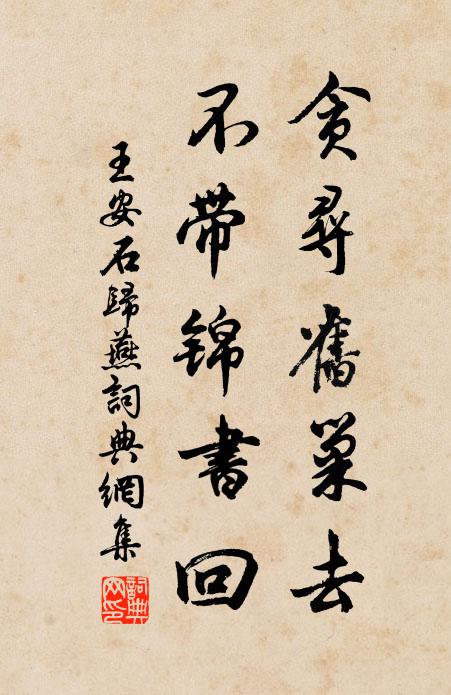 貪尋舊巢去
不帶錦書回
王安石歸燕詞典網集
詞典網印